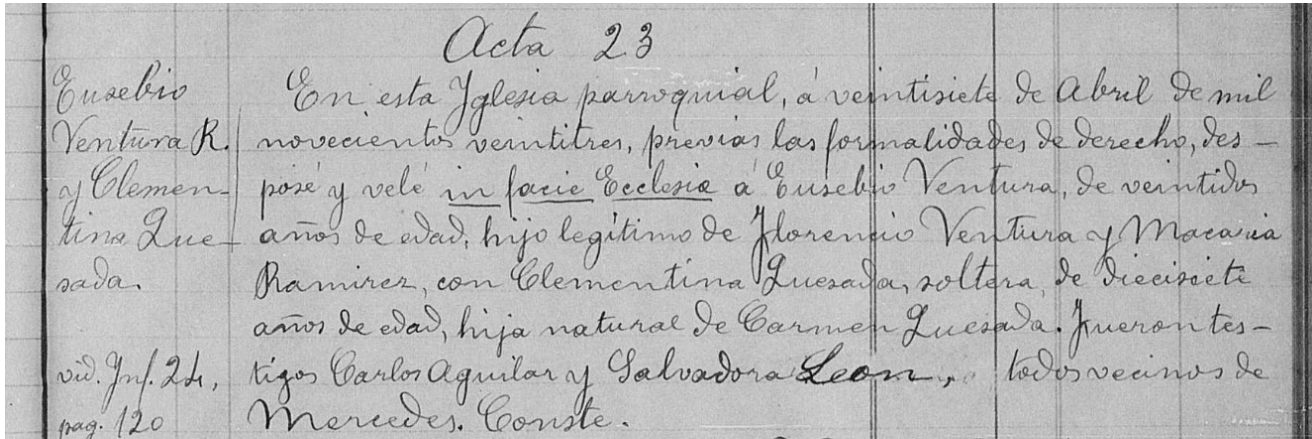 Acta 23
Eusebio
Ventura R.
y Clemen-
tina Que-
sada.
vid. Inf. 24,
pag. 120
En esta Yglesia parroquial, á veintisiete de Abril de mil
novecientos veintitres, previas las formalidades de derecho, des-
posé y velé in facie Ecclesiæ á Eusebio Ventura, de veintidos
años de edad, hijo legítimo de Florencio Ventura y Macaria
Ramirez, con Clementina Quesada, soltera, de diecisiete
años de edad, hija natural de Carmen Quesada. Fueron tes-
tigos Carlos Aguilar y Salvadora Leon, todos vecinos de
Mercedes. Conste.